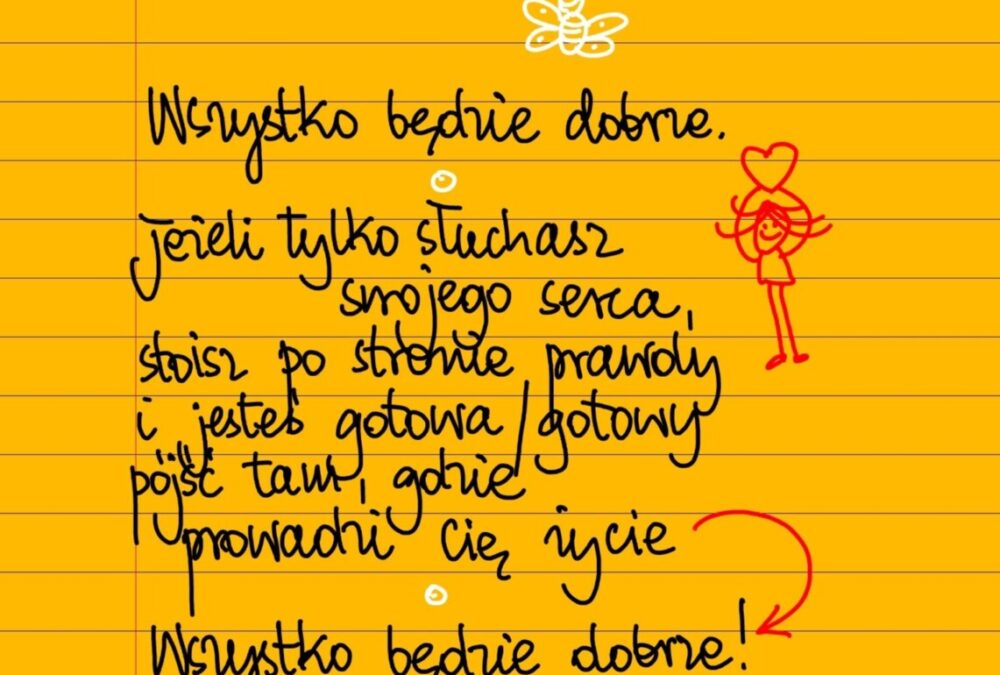 Wszystko będzie dobrze.
jeżeli tylko słuchasz
swojego serca,
stoisz po stronie prawdy
i jesteś gotowa/gotowy
pójść tam, gdzie
prowadzi Cię życie
Wszystko będzie dobrze!